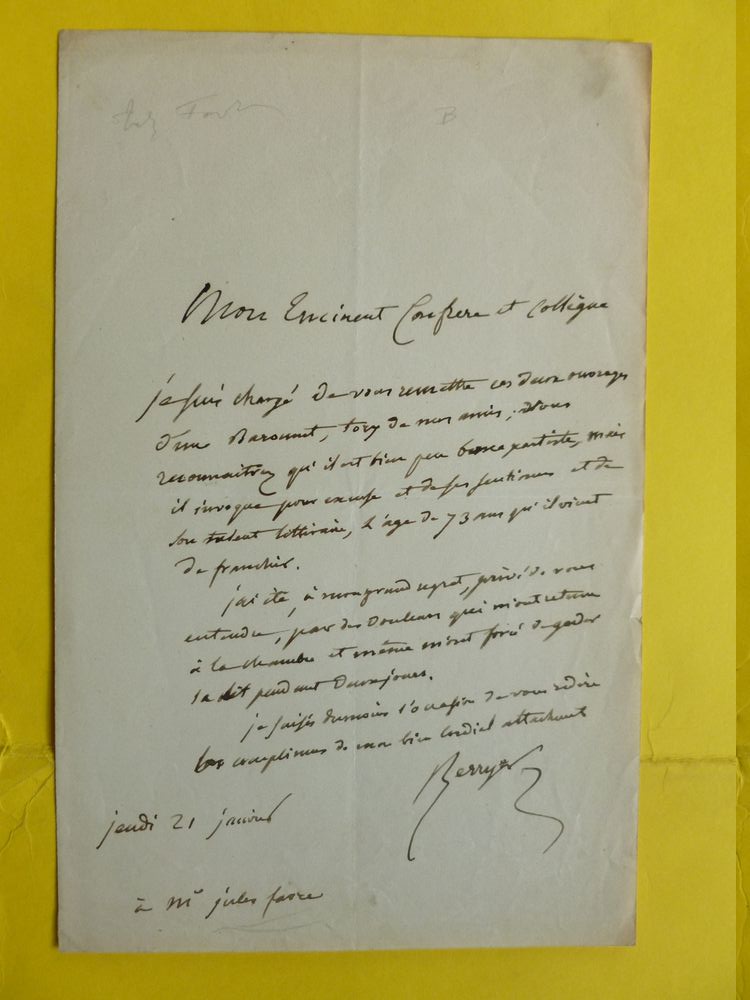 B
Mon Eminent Confrere et Collègue
je suis chargé de vous remettre ces deux ouvrages
d'un Baronnet, tory de nos amis; vous
reconnaitrez qu'il est bien peu bonapartiste, mais
il invoque pour excuse et de ses sentimens et de
son talent littéraire, l'âge de 73 ans qu'il vient
de franchir.
j'ai été, à mon grand regret, privé de vous
entendre, par des douleurs qui m'ont retenu
à la chambre et même m'ont forcé de garder
le lit pendant deux jours.
je saisis du moins l'occasion de vous redire
les complimens de mon bien cordial attachement
Berryer
jeudi 21 janvier
à Mr jules favre